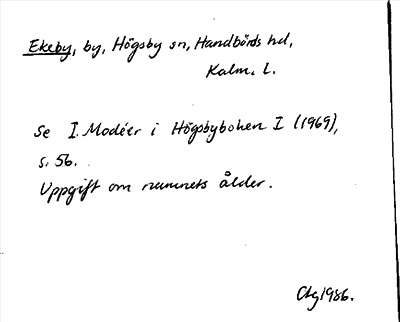 Ekeby, by, Högsby sn, Handbörds hd,
Kalm. l.
Se I. Modéer i Högsbyboken I (1969),
s. 56.
Uppgift om namnets ålder.
1986.